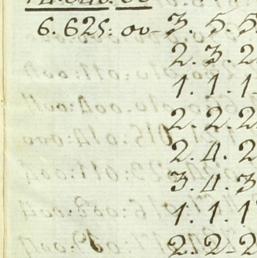 6.625:00 3.5.5
2.3.2
1.1.1
2.2.2
2.4.2
3.4.3
1.1.1
2.2.2